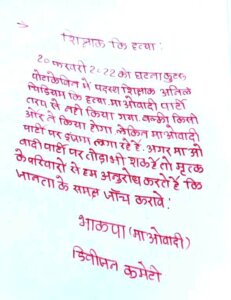 शिक्षक कि हत्या:
20 फरवरी 2022 को घटना कुटरू
पोटकेवाड़ा में पदस्थ शिक्षक अनिल
चिडियम कि हत्या. माओवादी पार्टी
तरफ से नही किया गया बल्की किसी
ओर ने किया होगा लेकिन माओवादी
पार्टी पर इल्जाम लगा रहे हे. अगर माओ
वादी पार्टी पर तोड़ा भी शक हे तो मृतक
के परिवारो से हम अनुरोध करते हे कि
जानता के समक्ष जाँच करावे!
भाकपा (माओवादी)
डिवीजन कमेटी